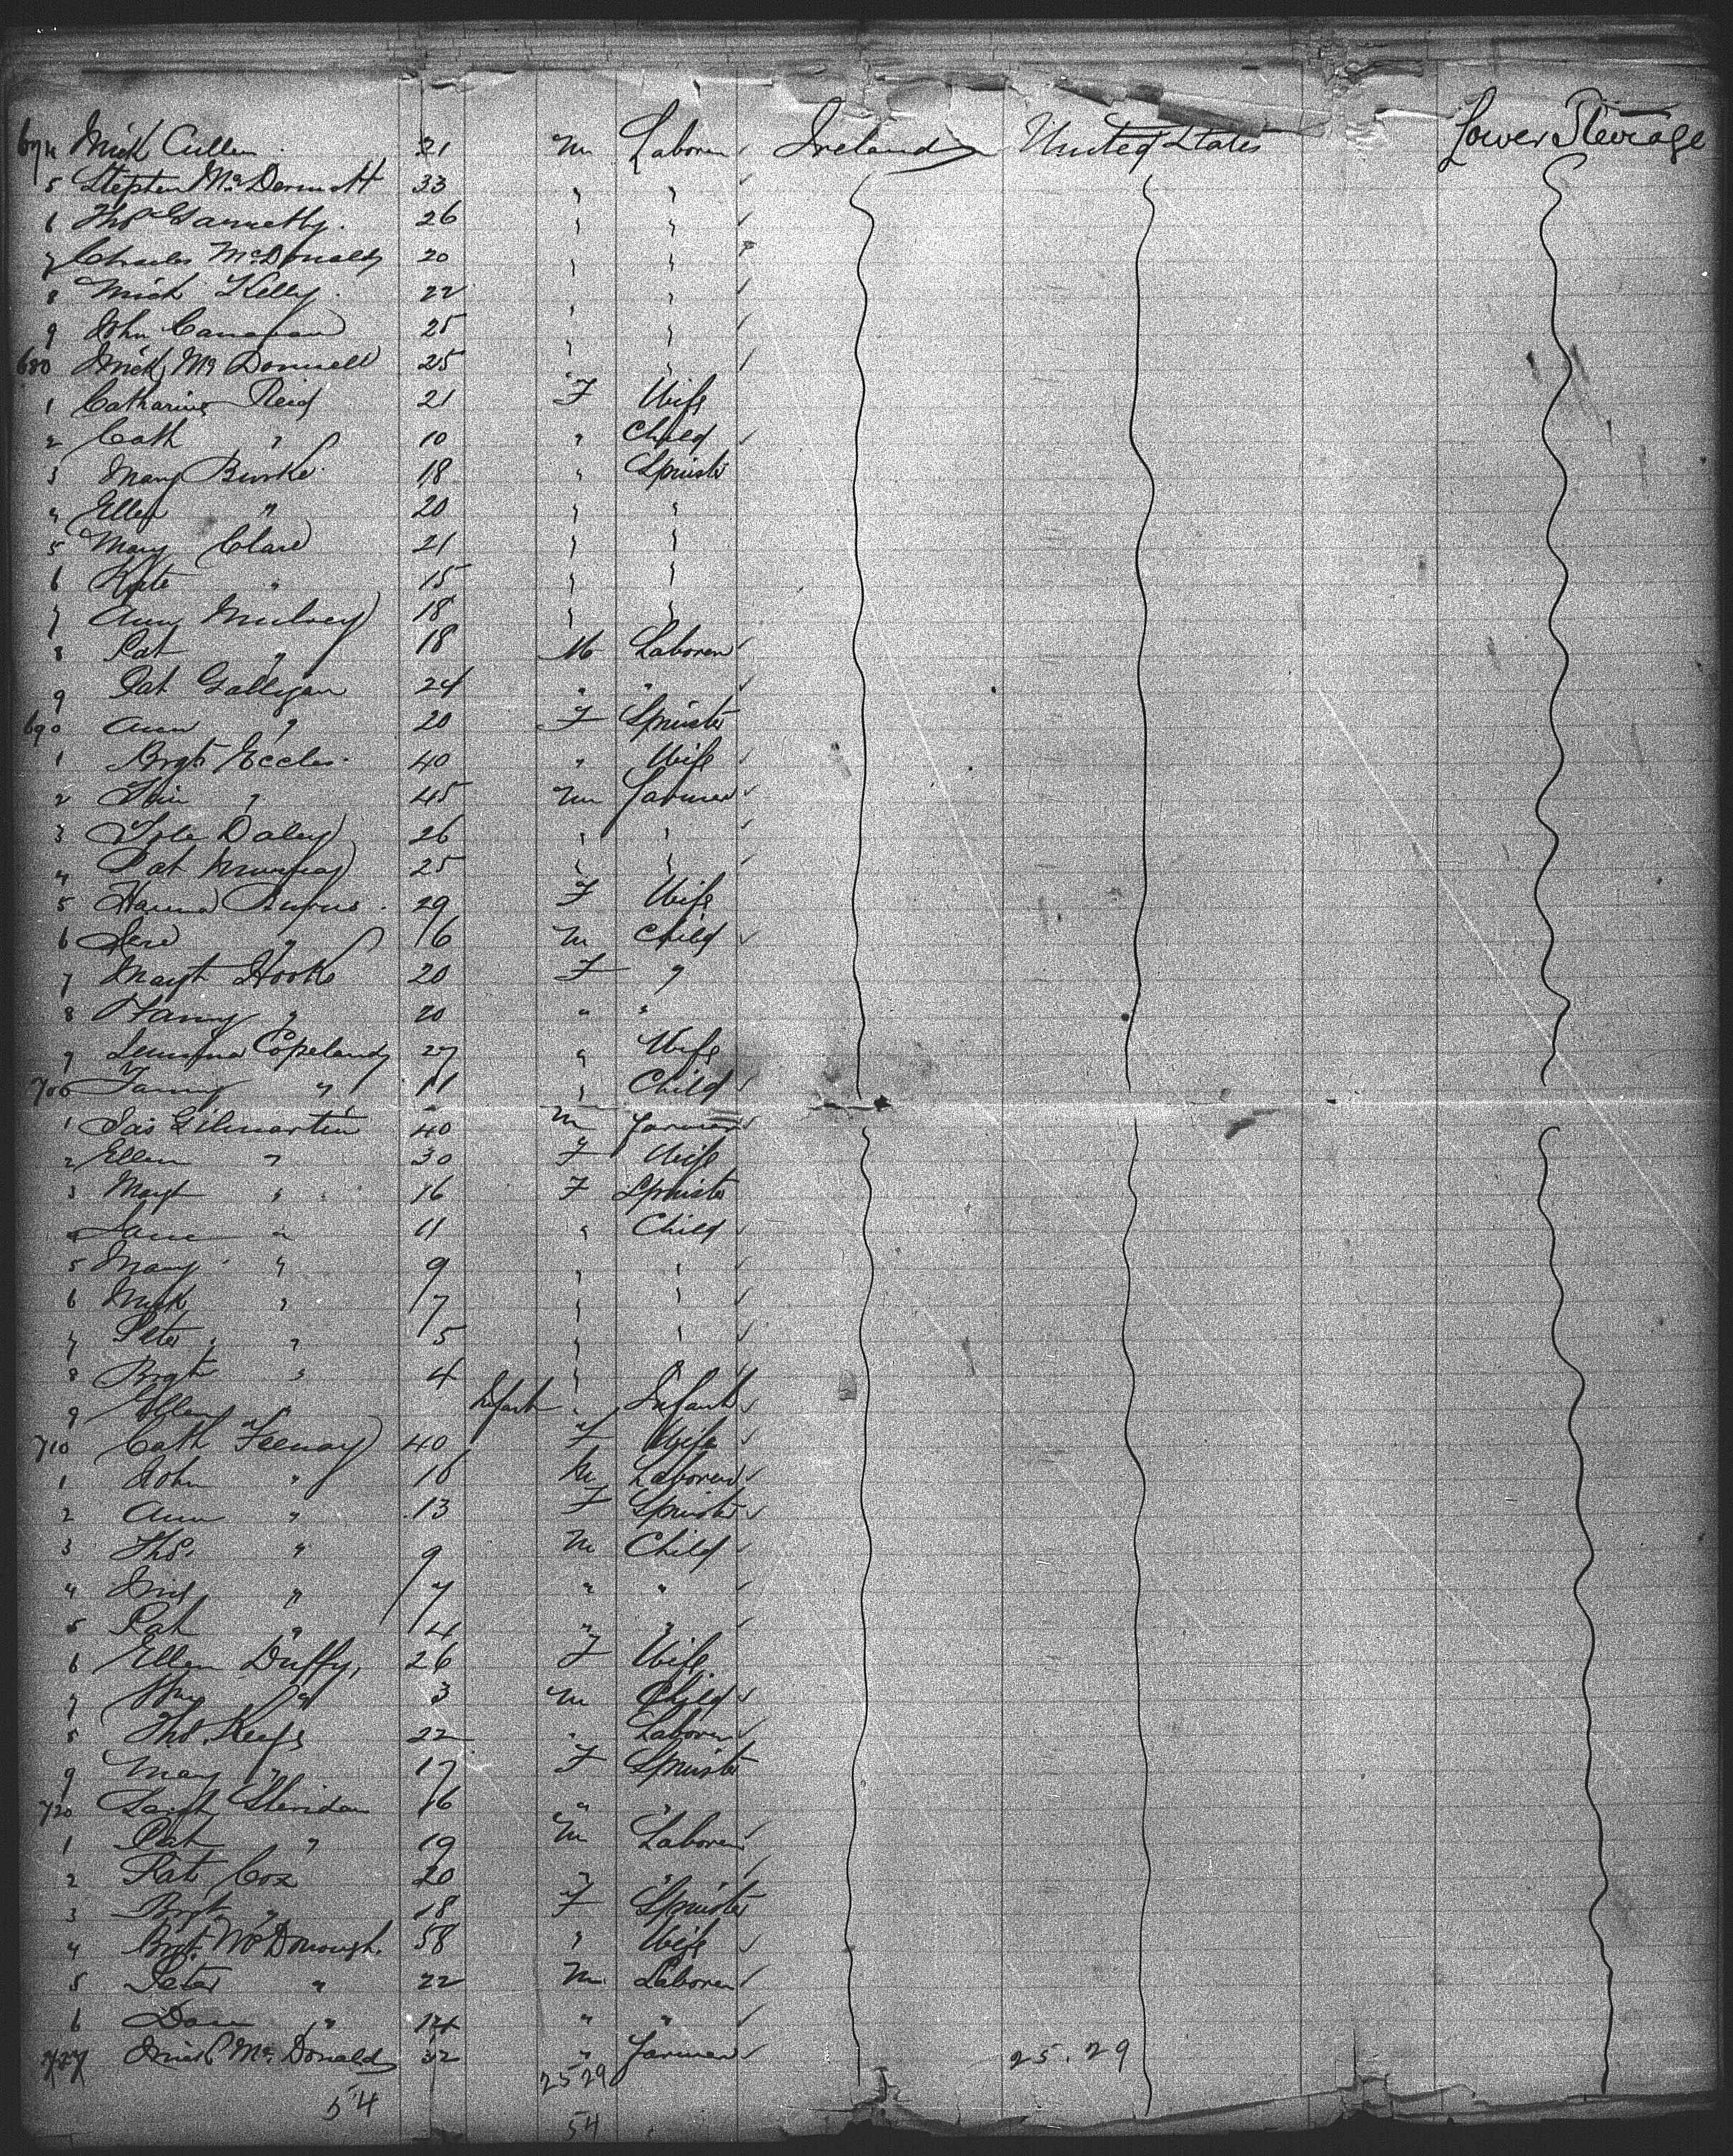 674 Mick Cullen 21 M Laborer Ireland United States Lower Steerage
5 Stephen McDermott 33 " "
6 Thos 26 " "
7 Charles McDonald 20 " "
8 Mich Kelly 22 " "
9 John 25 " "
680 Mick McDonnell 25 " "
1 Catharine Reid 21 F Wife
2 Cath " 10 " Child
3 Mary Burke 18 " Spinster
4 Ellen " 20 " "
5 Mary Clare 21 " "
6 Kate " 15 " "
7 Ann Mulvey 18 " "
8 Pat " 18 M Laborer
9 Pat Galligan 24 " "
690 Ann " 20 F Spinster
1 Brgt Eccles 40 " Wife
2 " 45 M Farmer
3 Daley 26 " "
4 Pat Murray 25 " "
5 Hanna Burns 29 F Wife
6 " 6 M Child
7 Margt Hooke 20 F "
8 Fanny " 20 " "
9 Jemima Copeland 27 " Wife
700 Fanny " 11 " Child
1 Jas Gilmartin 40 M Farmer
2 Ellen " 30 F Wife
3 Margt " 16 F Spinster
4 Jane " 11 " Child
5 Mary " 9 " "
6 Mick " 7 " "
7 Peter " 5 " "
8 Brgt " 4 "
9 Ellen " Infant " Infant
710 Cath Feenay 40 F Wife
1 John " M Laborer
2 Ann " 13 F Spinster
3 Thos. " 9 M Child
4 " 7 " "
5 Pat " 4 " "
6 Ellen Duffy, 26 F Wife
7 " 3 M Child
8 Thos. 22 " Laborer
9 Mary " 17 F Spinster
720 Sheridan 16 " "
1 Pat " 19 M Laborer
2 Cox 20 " "
3 Brgt " 18 F Spinster
4 Brgt. McDonough 58 " Wife
5 Peter " 22 M Laborer
6 " 14 " "
727 Mick McDonald 32 " Farmer 25.29
25 29
54
54